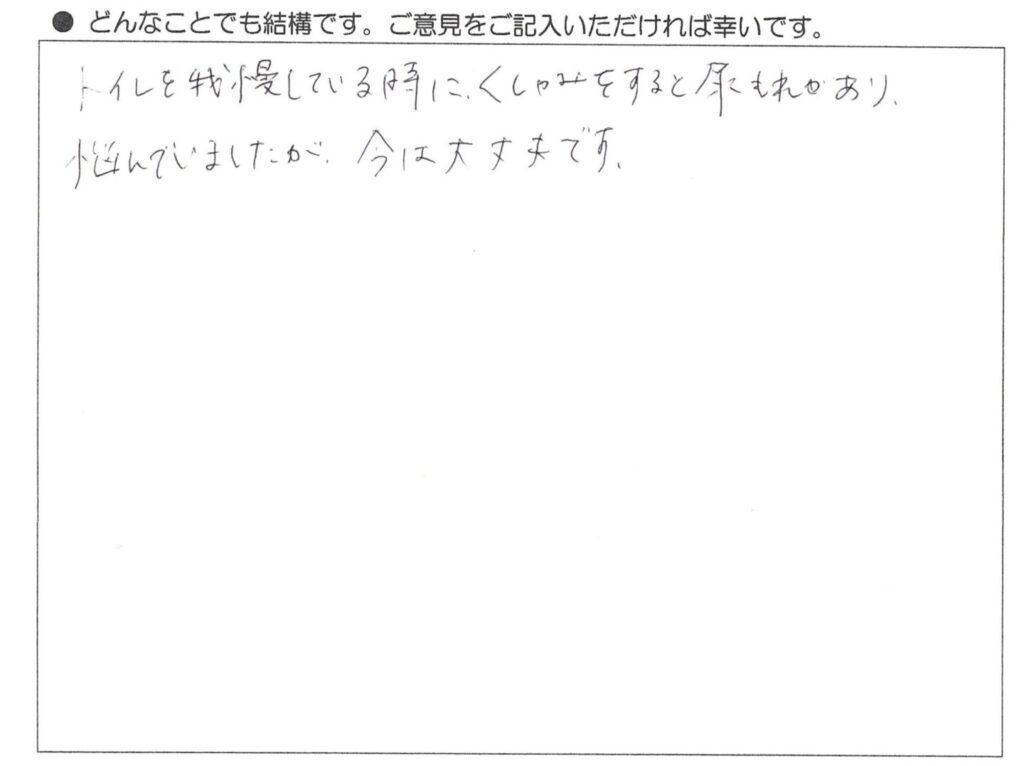 ● どんなことでも結構です。ご意見をご記入いただければ幸いです。
トイレを我慢している時に、くしゃみをすると尿もれがあり、
悩んでいましたが、今は大丈夫です。